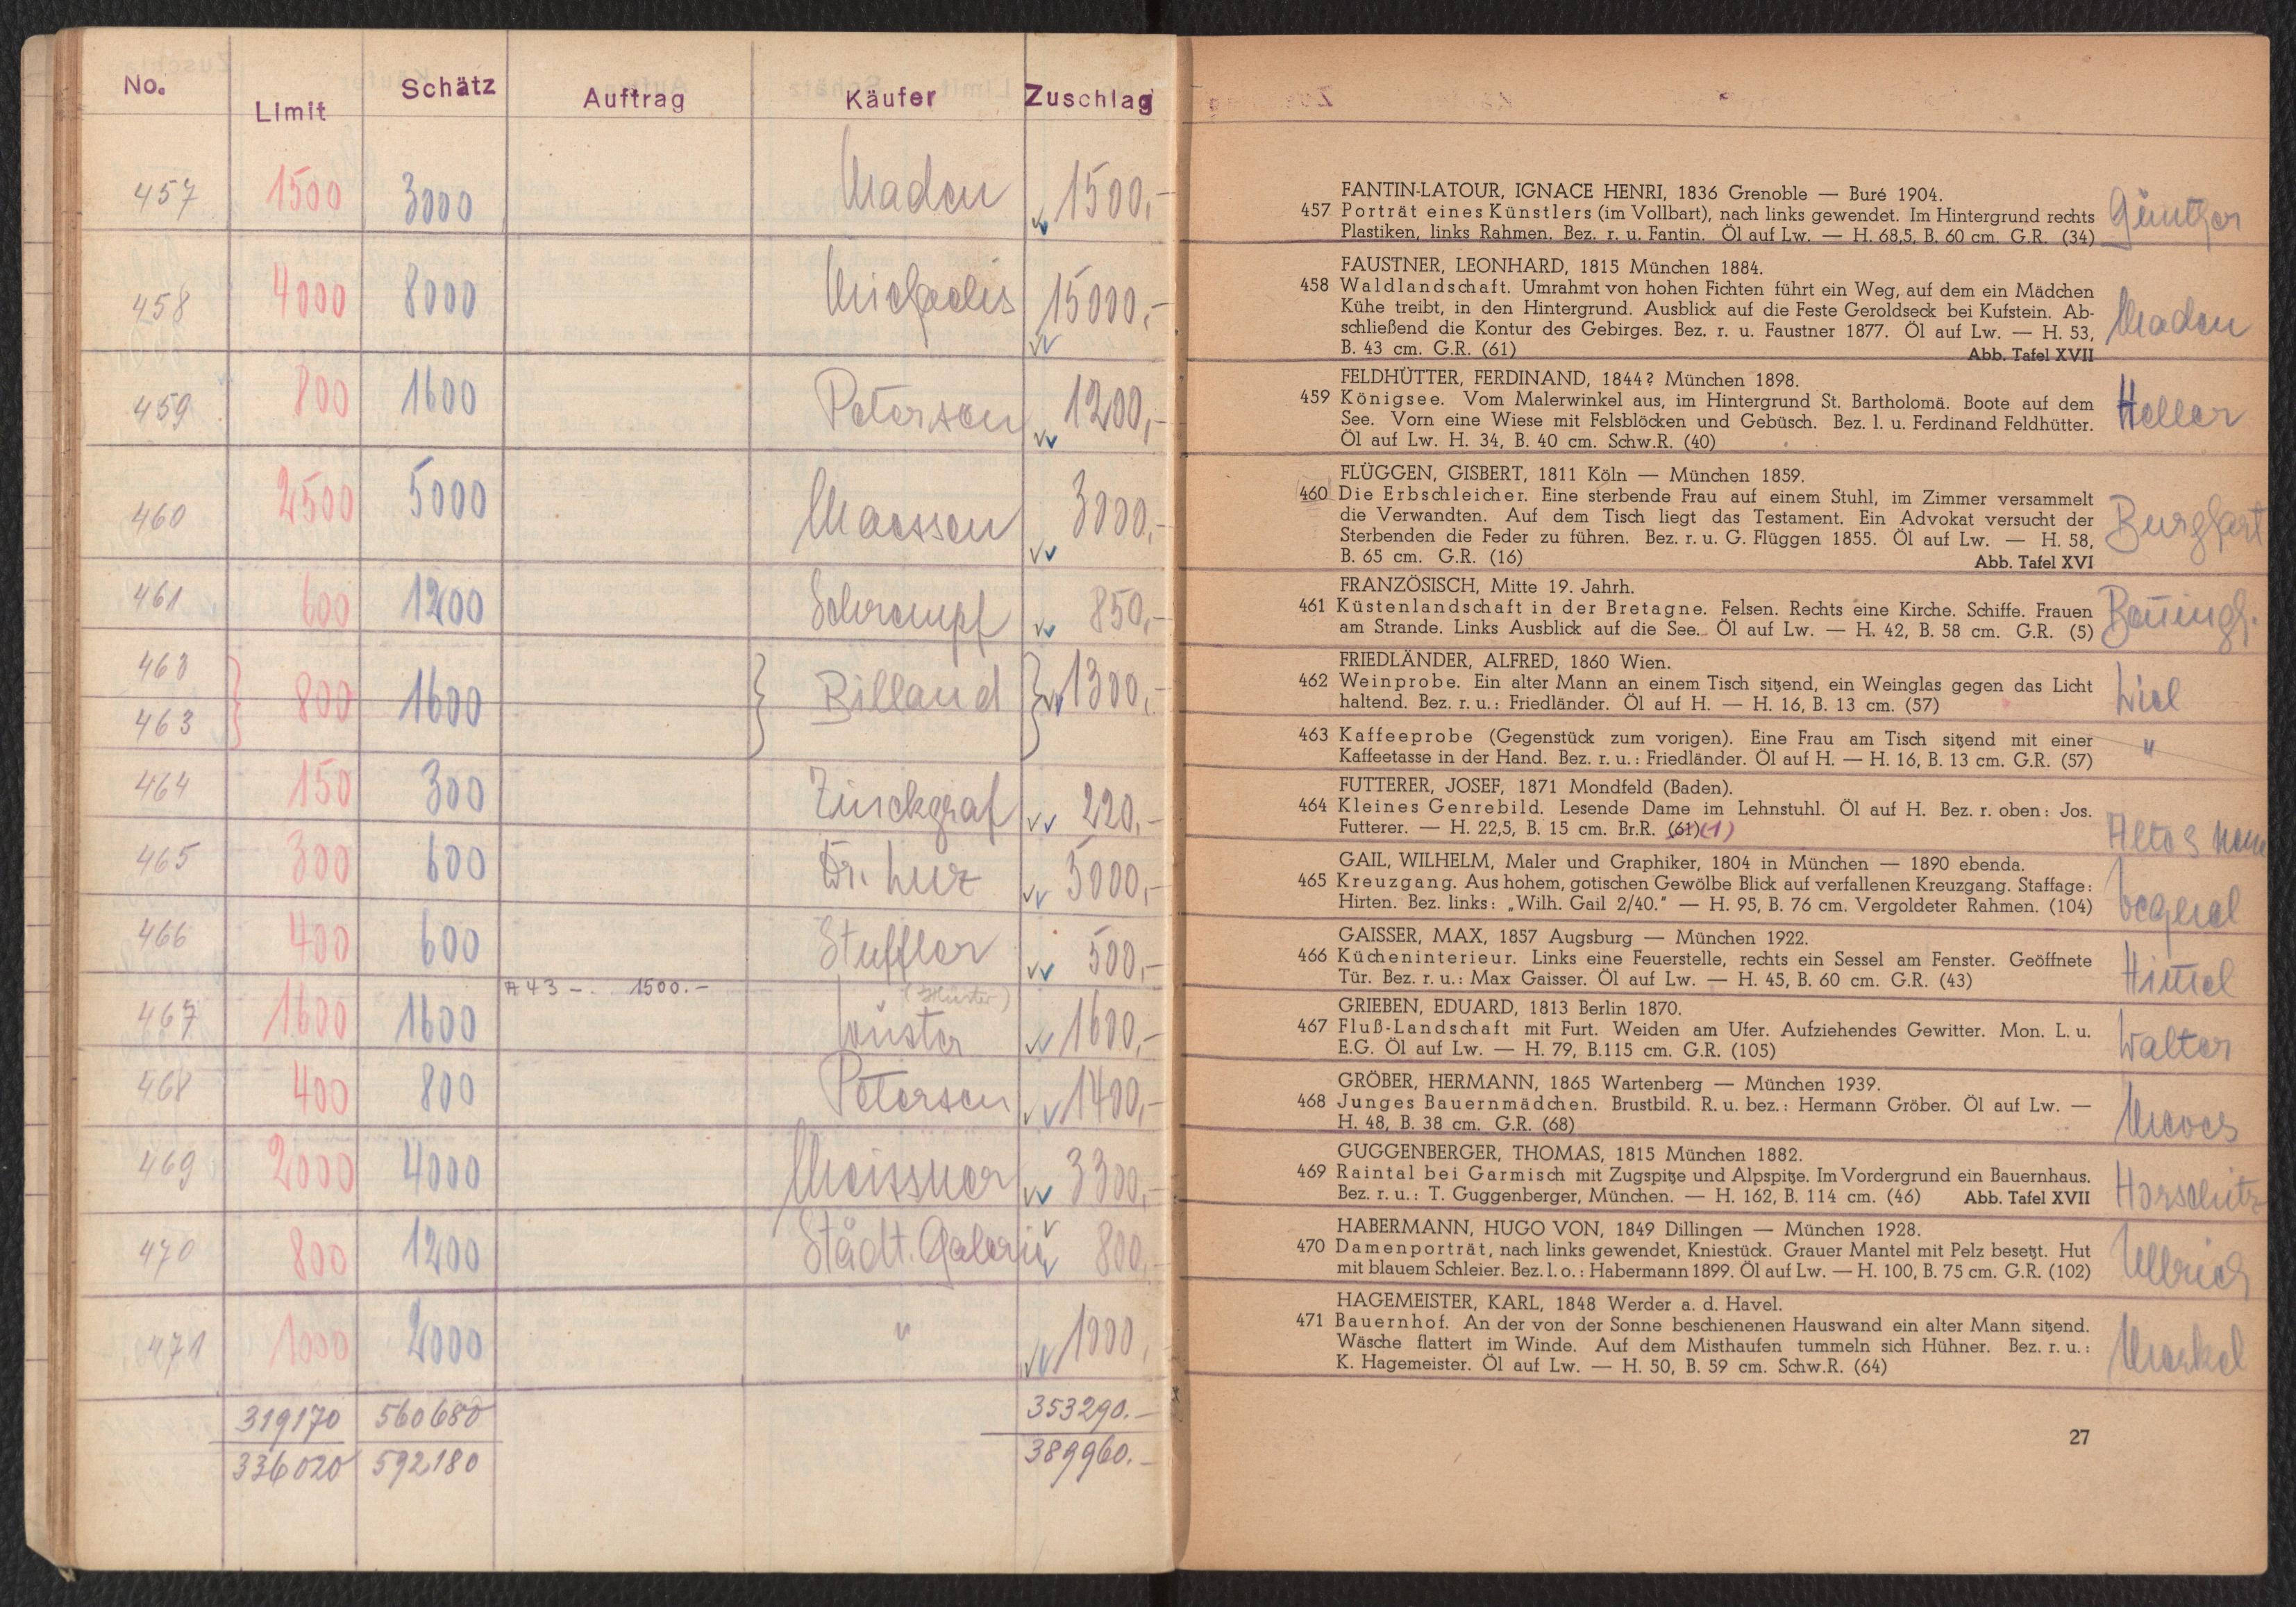 No. Limit Schätz Auftrag Käufer Zuschlag
457 1500 3000 Maden 1500,-
458 4000 8000 Michaelis 15000,-
459 800 1600 Petersen 1200,-
460 2500 5000 Maessen 3000,-
461 600 1200 Schrempf 850,-
462
463 800 1600 Billand 1300,-
464 150 300 Zinckgraf 220,-
465 300 600 Dr. Lurz 5000,-
466 400 600 Stuffler 500,-
A 43 -. 1500.-
467 1600 1600 Wüster 1600,-
468 400 800 Petersen 1400,-
469 2000 4000 Meissner 3300,-
470 800 1200 Städt. Galerie 800,-
471 1000 2000 " 1000,
319170 560680 353290.-
336020 592180 389960.-
FANTIN-LATOUR, IGNACE HENRI, 1836 Grenoble — Buré 1904.
457 Porträt eines Künstlers (im Vollbart), nach links gewendet. Im Hintergrund rechts
Plastiken, links Rahmen. Bez. r. u. Fantin. Öl auf Lw. — H. 68,5, B. 60 cm. G.R. (34)
Günther
FAUSTNER, LEONHARD, 1815 München 1884.
458 Waldlandschaft. Umrahmt von hohen Fichten führt ein Weg, auf dem ein Mädchen
Kühe treibt, in den Hintergrund. Ausblick auf die Feste Geroldseck bei Kufstein. Ab-
schließend die Kontur des Gebirges. Bez. r. u. Faustner 1877. Öl auf Lw. — H. 53,
B. 43 cm. G.R. (61) Abb. Tafel XVII
Maden
FELDHÜTTER, FERDINAND, 1844? München 1898.
459 Königsee. Vom Malerwinkel aus, im Hintergrund St. Bartholomä. Boote auf dem
See. Vorn eine Wiese mit Felsblöcken und Gebüsch. Bez. l. u. Ferdinand Feldhütter.
Öl auf Lw. H. 34, B. 40 cm. Schw.R. (40)
Heller
FLÜGGEN, GISBERT, 1811 Köln — München 1859.
460 Die Erbschleicher. Eine sterbende Frau auf einem Stuhl, im Zimmer versammelt
die Verwandten. Auf dem Tisch liegt das Testament. Ein Advokat versucht der
Sterbenden die Feder zu führen. Bez. r. u. G. Flüggen 1855. Öl auf Lw. — H. 58,
B. 65 cm. G.R. (16) Abb. Tafel XVI
Burghart
FRANZÖSISCH, Mitte 19. Jahrh.
461 Küstenlandschaft in der Bretagne. Felsen. Rechts eine Kirche. Schiffe. Frauen
am Strande. Links Ausblick auf die See. Öl auf Lw. — H. 42, B. 58 cm. G.R. (5)
FRIEDLÄNDER, ALFRED, 1860 Wien.
462 Weinprobe. Ein alter Mann an einem Tisch sitzend, ein Weinglas gegen das Licht
haltend. Bez. r. u.: Friedländer. Öl auf H. — H. 16, B. 13 cm. (57)
463 Kaffeeprobe (Gegenstück zum vorigen). Eine Frau am Tisch sitzend mit einer
Kaffeetasse in der Hand. Bez. r. u.: Friedländer. Öl auf H. — H. 16, B. 13 cm. G.R. (57)
"
FUTTERER, JOSEF, 1871 Mondfeld (Baden).
464 Kleines Genrebild. Lesende Dame im Lehnstuhl. Öl auf H. Bez. r. oben: Jos.
Futterer. — H. 22,5, B. 15 cm. Br.R. (61) (1)
GAIL, WILHELM, Maler und Graphiker, 1804 in München — 1890 ebenda.
465 Kreuzgang. Aus hohem, gotischen Gewölbe Blick auf verfallenen Kreuzgang. Staffage:
Hirten. Bez. links: „Wilh. Gail 2/40." — H. 95, B. 76 cm. Vergoldeter Rahmen. (104)
GAISSER, MAX, 1857 Augsburg — München 1922.
466 Kücheninterieur. Links eine Feuerstelle, rechts ein Sessel am Fenster. Geöffnete
Tür. Bez. r. u.: Max Gaisser. Öl auf Lw. — H. 45, B. 60 cm. G.R. (43)
GRIEBEN, EDUARD, 1813 Berlin 1870.
467 Fluß-Landschaft mit Furt. Weiden am Ufer. Aufziehendes Gewitter. Mon. L. u.
E.G. Öl auf Lw. — H. 79, B.115 cm. G.R. (105)
Walter
GRÖBER, HERMANN, 1865 Wartenberg — München 1939.
468 Junges Bauernmädchen. Brustbild. R. u. bez.: Hermann Gröber. Öl auf Lw. —
H. 48, B. 38 cm. G.R. (68)
GUGGENBERGER, THOMAS, 1815 München 1882.
469 Raintal bei Garmisch mit Zugspitze und Alpspitze. Im Vordergrund ein Bauernhaus.
Bez. r. u.: T. Guggenberger, München. — H. 162, B. 114 cm. (46) Abb. Tafel XVII
Horschitz
HABERMANN, HUGO VON, 1849 Dillingen — München 1928.
470 Damenporträt, nach links gewendet, Kniestück. Grauer Mantel mit Pelz besetzt. Hut
mit blauem Schleier. Bez. l. o.: Habermann 1899. Öl auf Lw. — H. 100, B. 75 cm. G.R. (102)
Ullrich
HAGEMEISTER, KARL, 1848 Werder a. d. Havel.
471 Bauernhof. An der von der Sonne beschienenen Hauswand ein alter Mann sitzend.
Wäsche flattert im Winde. Auf dem Misthaufen tummeln sich Hühner. Bez. r. u.:
K. Hagemeister. Öl auf Lw. — H. 50, B. 59 cm. Schw.R. (64)
Merkel
27